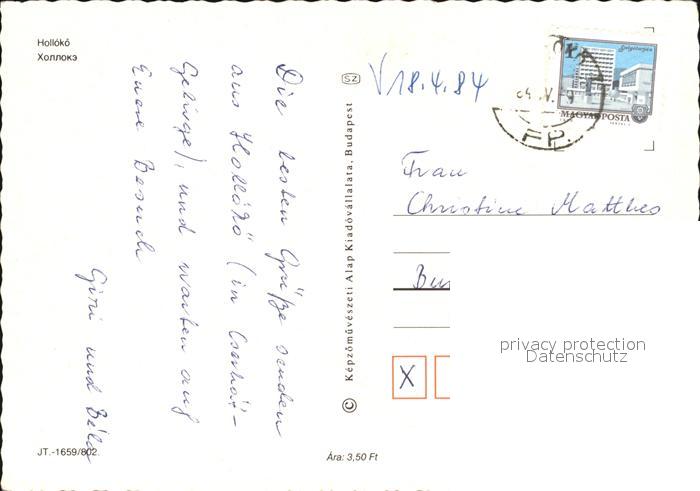 Hollókő
Холлокэ
Die besten Grüße senden
aus Hollókő (in Cserhát-
Gebirge), und warten auf
Euere Besuch
Gizi und Béla
JT.-1659/802.
Ára: 3,50 Ft
© Képzőművészeti Alap Kiadóvállalata, Budapest
SZ
V 18.4.84
MAGYAR POSTA
Frau
Christine Mattheo
X
privacy protection
Datenschutz